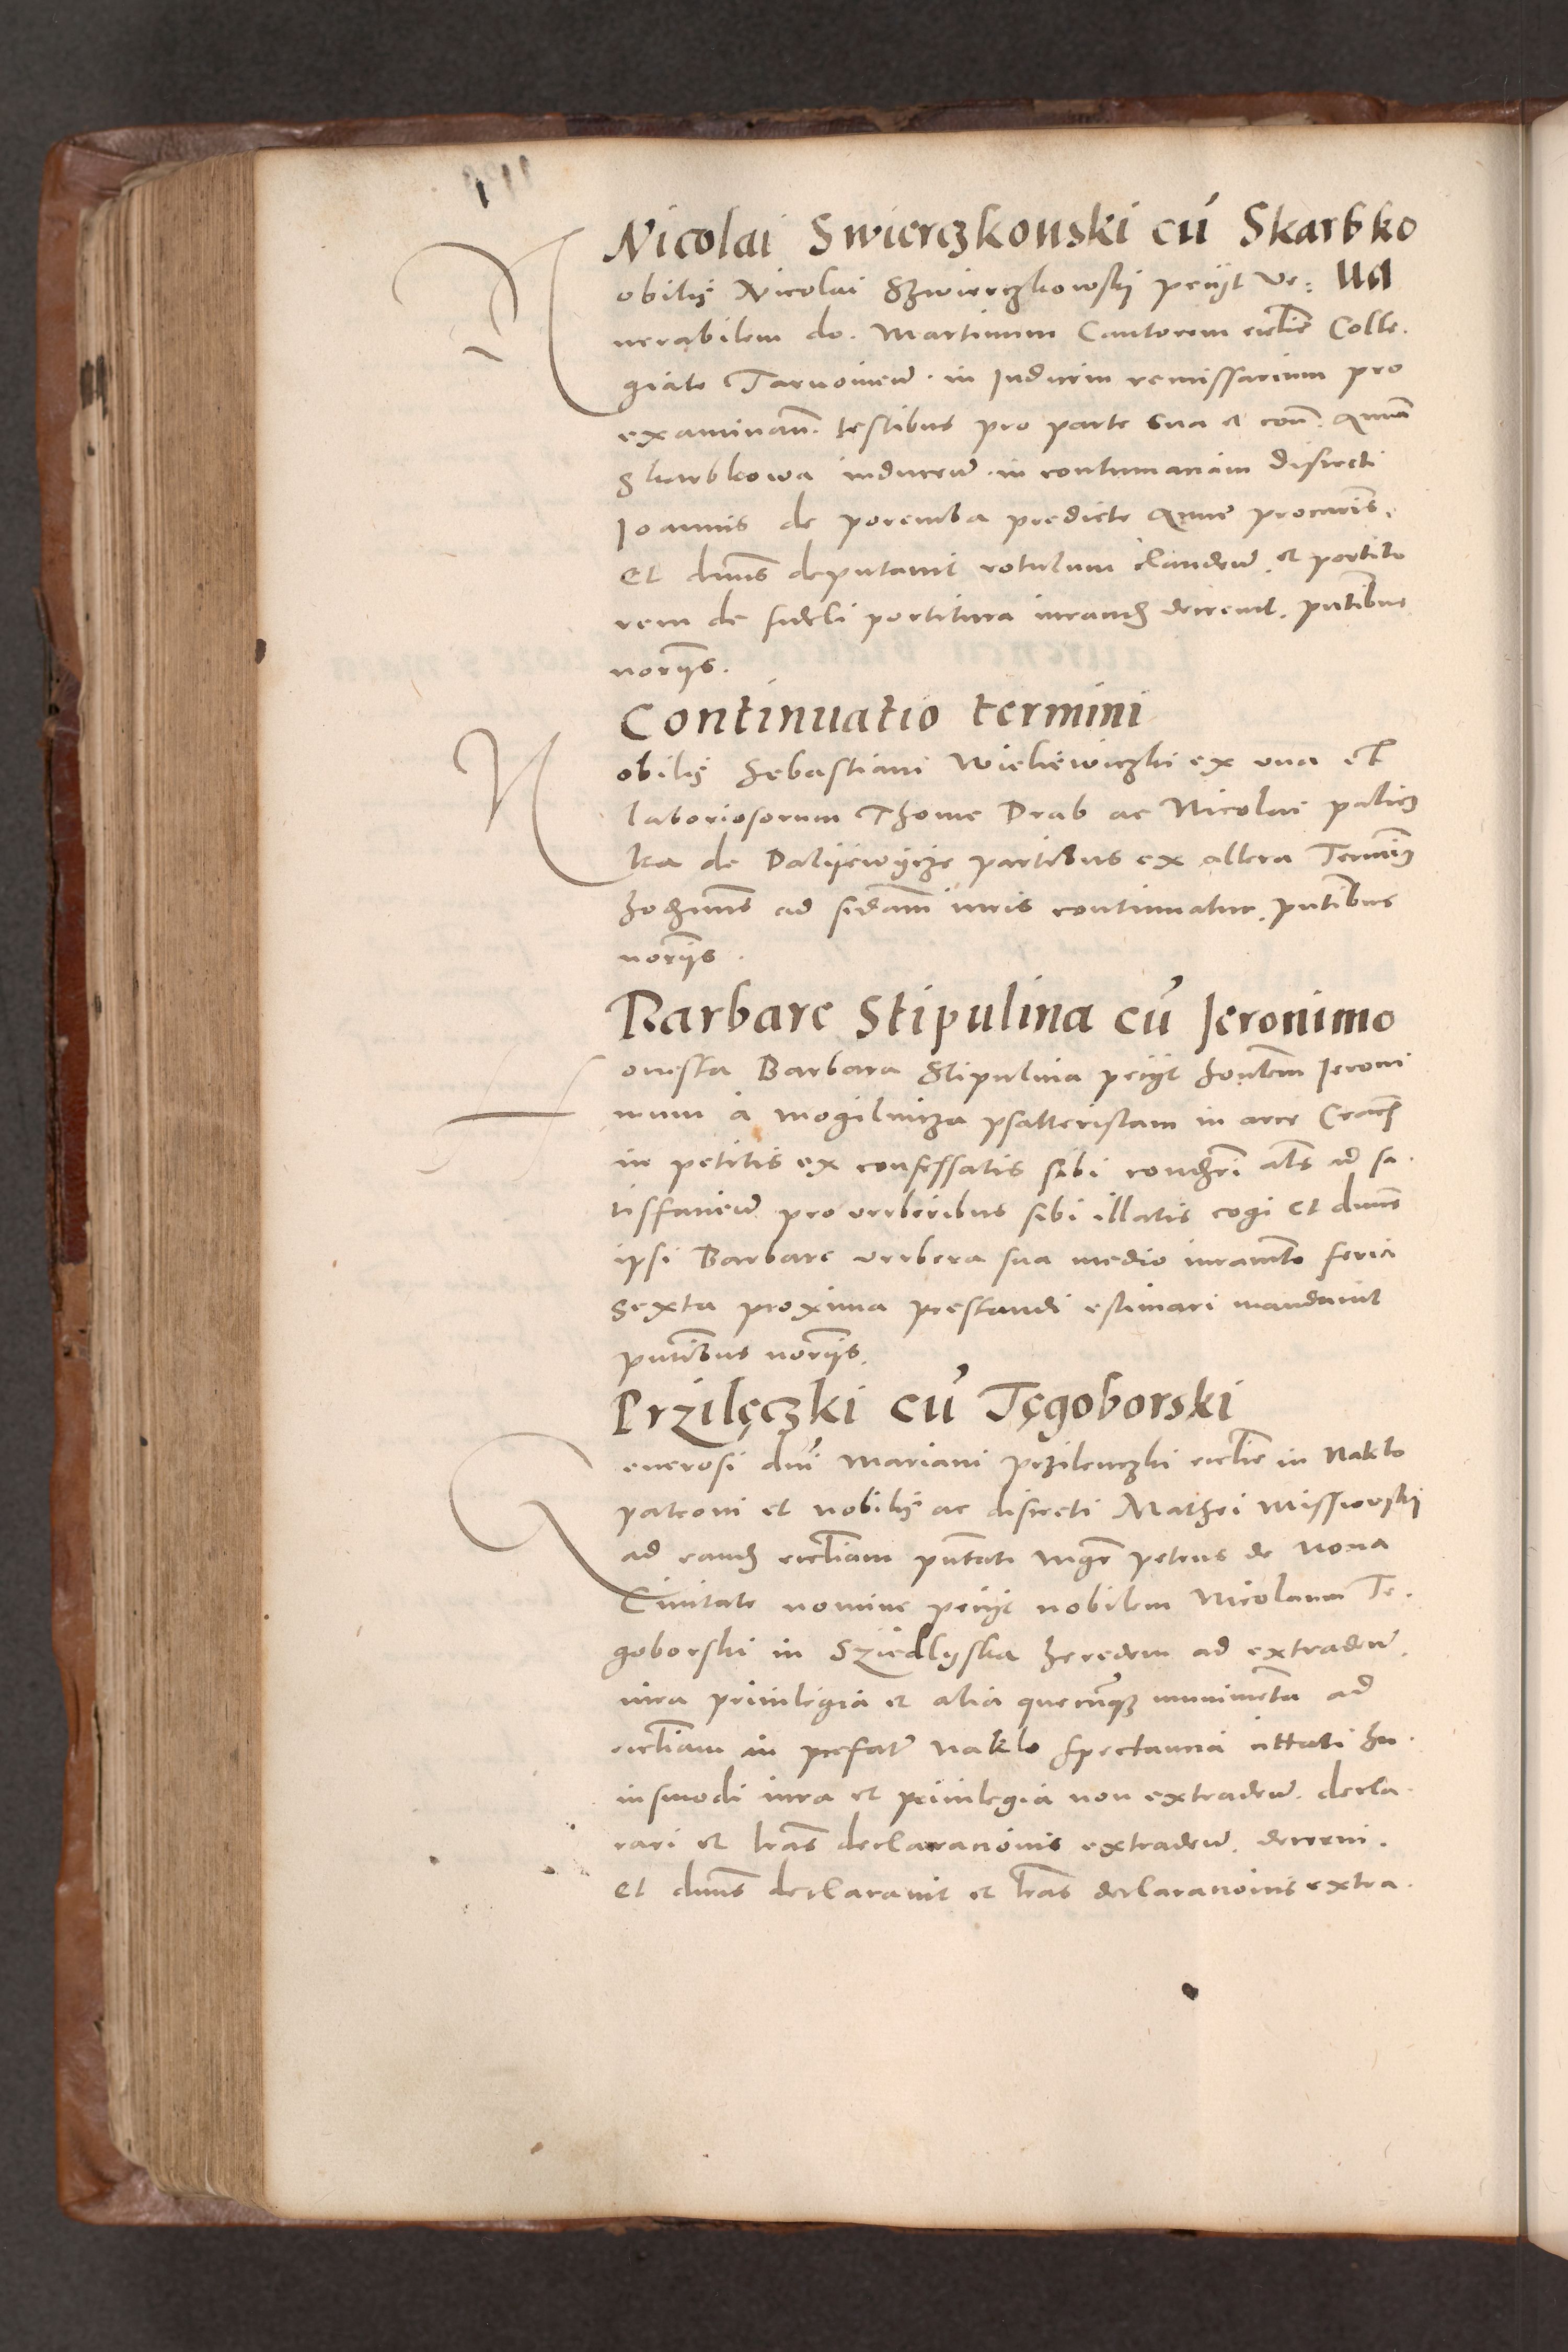 Nicolai Swierczkouski cū Skarbko
ua
Nobilis Nicolai Szwierczkowskj petijt Ve:
nerabilem do. Martinum Cantorem ecclīe Colle.
giate Tarnovieñ. in Judicem remissarium pro
examinañ. testibus pro parte sua et coñ.
Skarbkowa inducen̄. in contumaciam discreti
Joannis de poremba predicte procuris.
Et dīīns deputavit rotulum claudeñ. et portito
rem de fideli portitura iurandū decrevit. pn̄tibus
norijs.
Continuatio termini
Nobilis Sebastiani Wieliewiczki ex una et
laboriosorum Thome Drab ac Nicolai palicz
ka de Dalyiewycze partibus ex altera Termin9
hodiernus ad iuris continuatur. pn̄tibus
norijs.
Barbare Stipulina cū Jeronimo
Honesta Barbara Stipulina petijt hon̄tem Jeroni
mum à mogilnicza psalteristam in arce Crac̄
in petitis ex confessatis sibi als ad sa.
tisfacieñ pro verberibus sibi illatis cogi et dn̄us
ipsi Barbare verbera sua medio iuramēto feria
sexta proxima prestandi estimari mandavit
pn̄tibus norijs.
Przilęczki cū Tęgoborski
Generosi dn̄i Mariani przilenczki ecclīe in Naklo
patroni et nobilis ac discreti Mathei Missiovskj
ad eandē ecclīam pn̄tati Mgr̄ petrus de Nova
Civitate nomine petijt nobilem Nicolaum Te.
goborski in Sziedlyska heredem ad extradeñ.
iura privilegia et alia quecūqz munimēta ad
ecclīam in prefat Naklo spectancia attenti hu.
iusmodi iura et privilegia non extradeñ. decla.
rari et lrās declaracionis extradeñ. decerni.
Et dn̄us declaravit et lrās declaracionis extra.